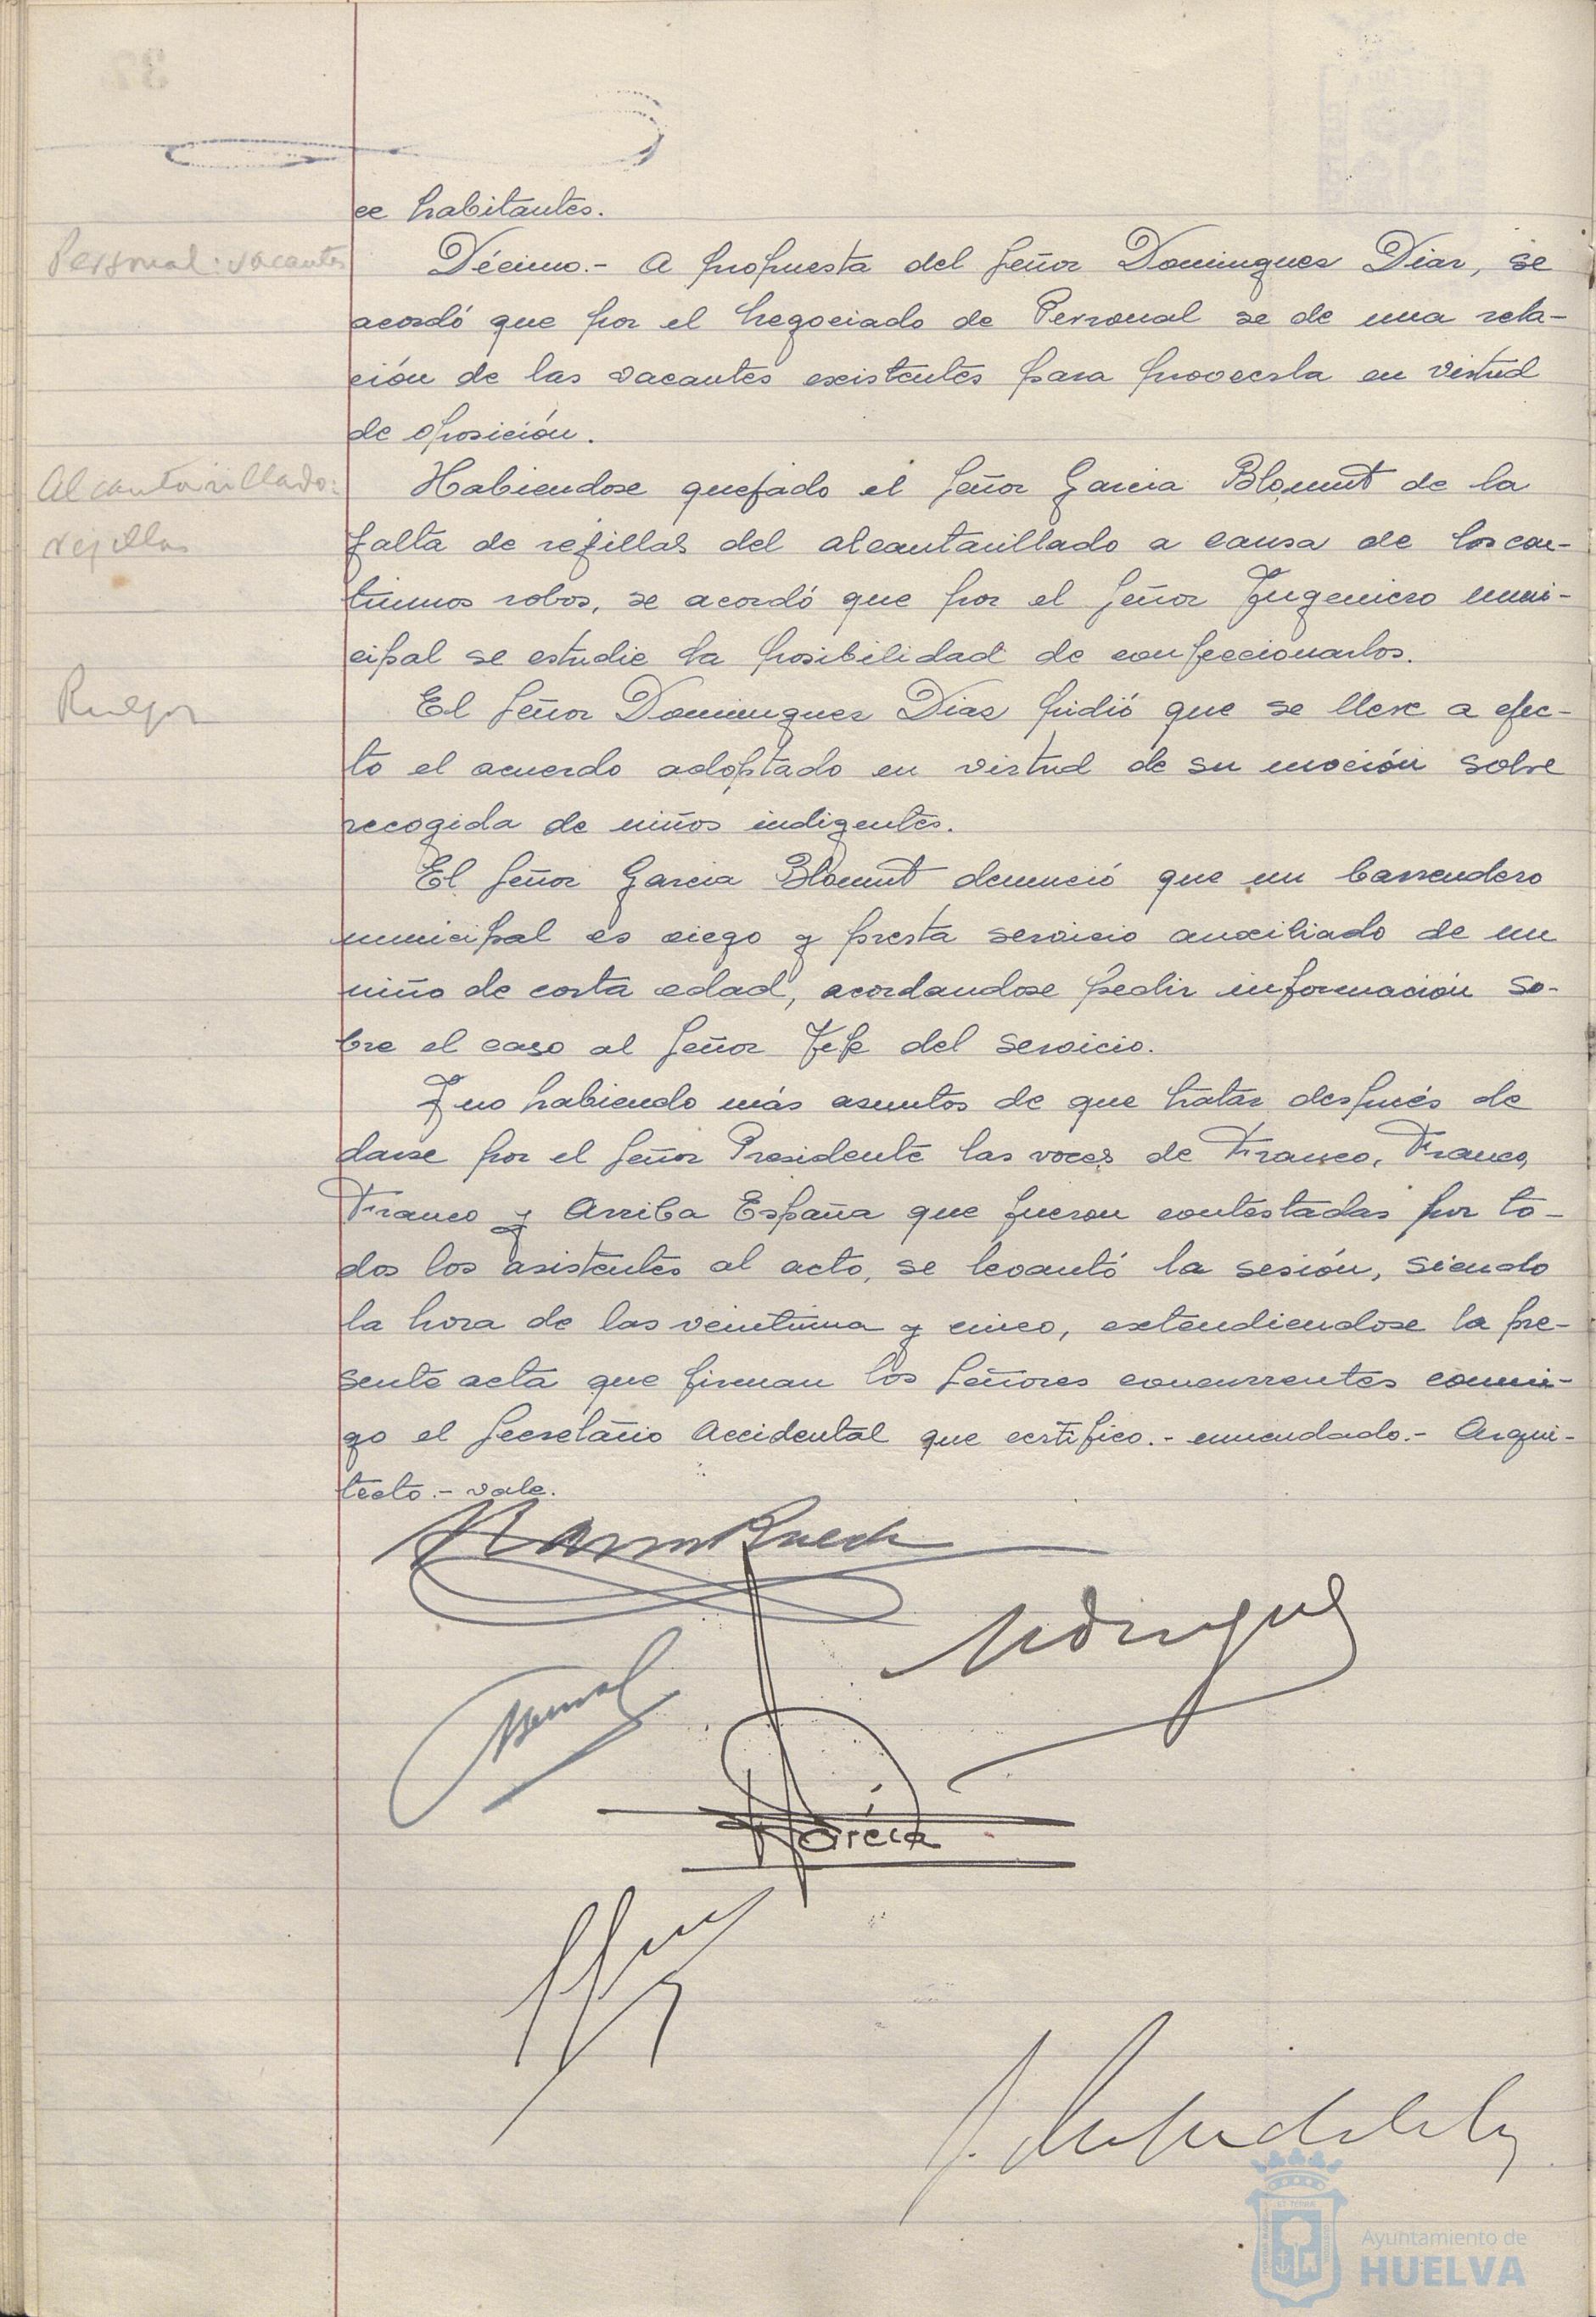 ce habitantes.
Personal: vacantes
Décimo.- A propuesta del Señor Dominguez Diaz, se
acordó que por el Negociado de Personal se de una rela-
ción de las vacantes existentes para proveerla en virtud
de oposición.
Alcantarillado:
rejillas
Habiendose quejado el Señor Garcia Blomunt de la
falta de rejillas del alcantarillado a causa de los con-
tinuos robos, se acordó que por el Señor Ingeniero muni-
cipal se estudie la posibilidad de confeccionarlos.
Ruegos
El Señor Dominguez Diaz pidió que se lleve a efec-
to el acuerdo adoptado en virtud de su moción sobre
recogida de niños indigentes.
El Señor Garcia Blomunt denunció que un barrendero
municipal es ciego y presta servicio auxiliado de un
niño de corta edad, acordandose pedir información so-
bre el caso al Señor Jefe del servicio.
Y no habiendo más asuntos de que tratar después de
darse por el Señor Presidente las voces de Franco, Franco,
Franco y Arriba España que fueron contestadas por to-
dos los asistentes al acto, se levantó la sesión, siendo
la hora de las veintiuna y cinco, extendiendose la pre-
sente acta que firman los Señores concurrentes conmi-
go el Secretario Accidental que certifico.- enmendado.- Arqui-
tecto.- vale.
Garcia
Ayuntamiento de
HUELVA